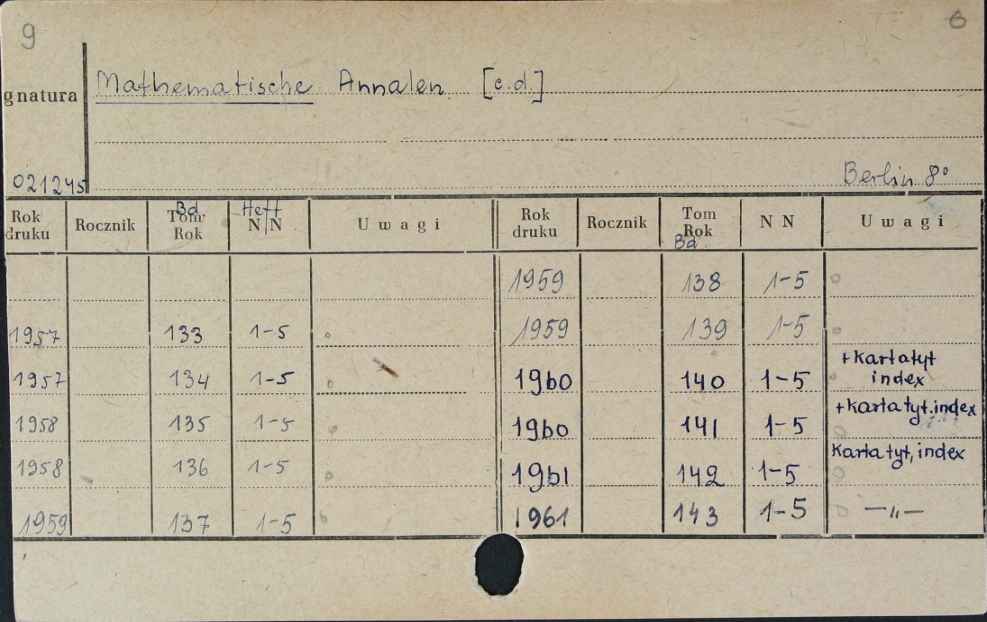 9 6
gnatura Mathematische Annalen [c.d.]
021245 Berlin 8°
Rok druku Rocznik Bd Tom Rok Heft N N Uwagi Rok druku Rocznik Tom Rok Bd. N N Uwagi
1959 138 1-5
1957 133 1-5 1959 139 1-5
1957 134 1-5 1960 140 1-5 +karta tyt index
1958 135 1-5 1960 141 1-5 +karta tyt.index
1958 136 1-5 1961 142 1-5 karta tyt, index
1959 137 1-5 1961 143 1-5 —„—